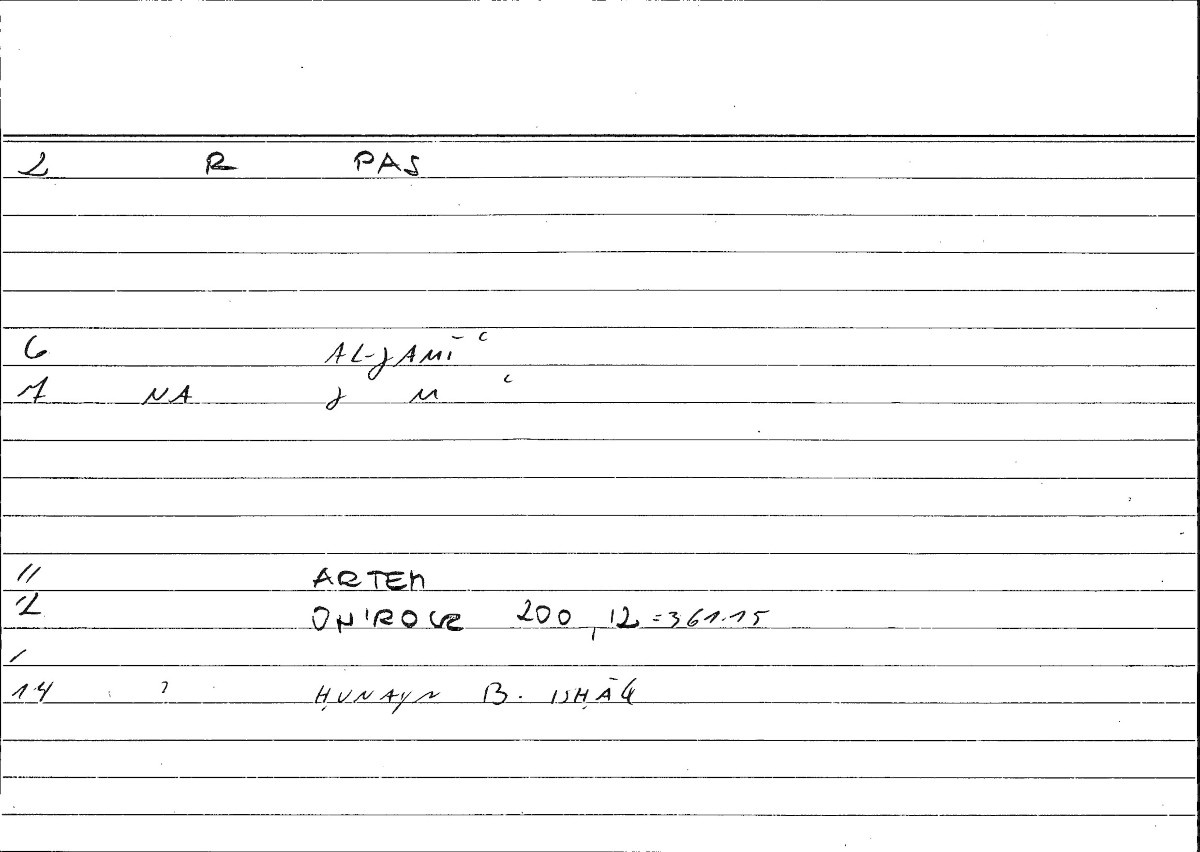 2 R PAS
6 AL-JAMĪʿ
7 NA J M ʿ
11 ARTEM
12 ONIROCR 200,12 = 361.15
14 ? ḤUNAYN B. ISḤĀQ